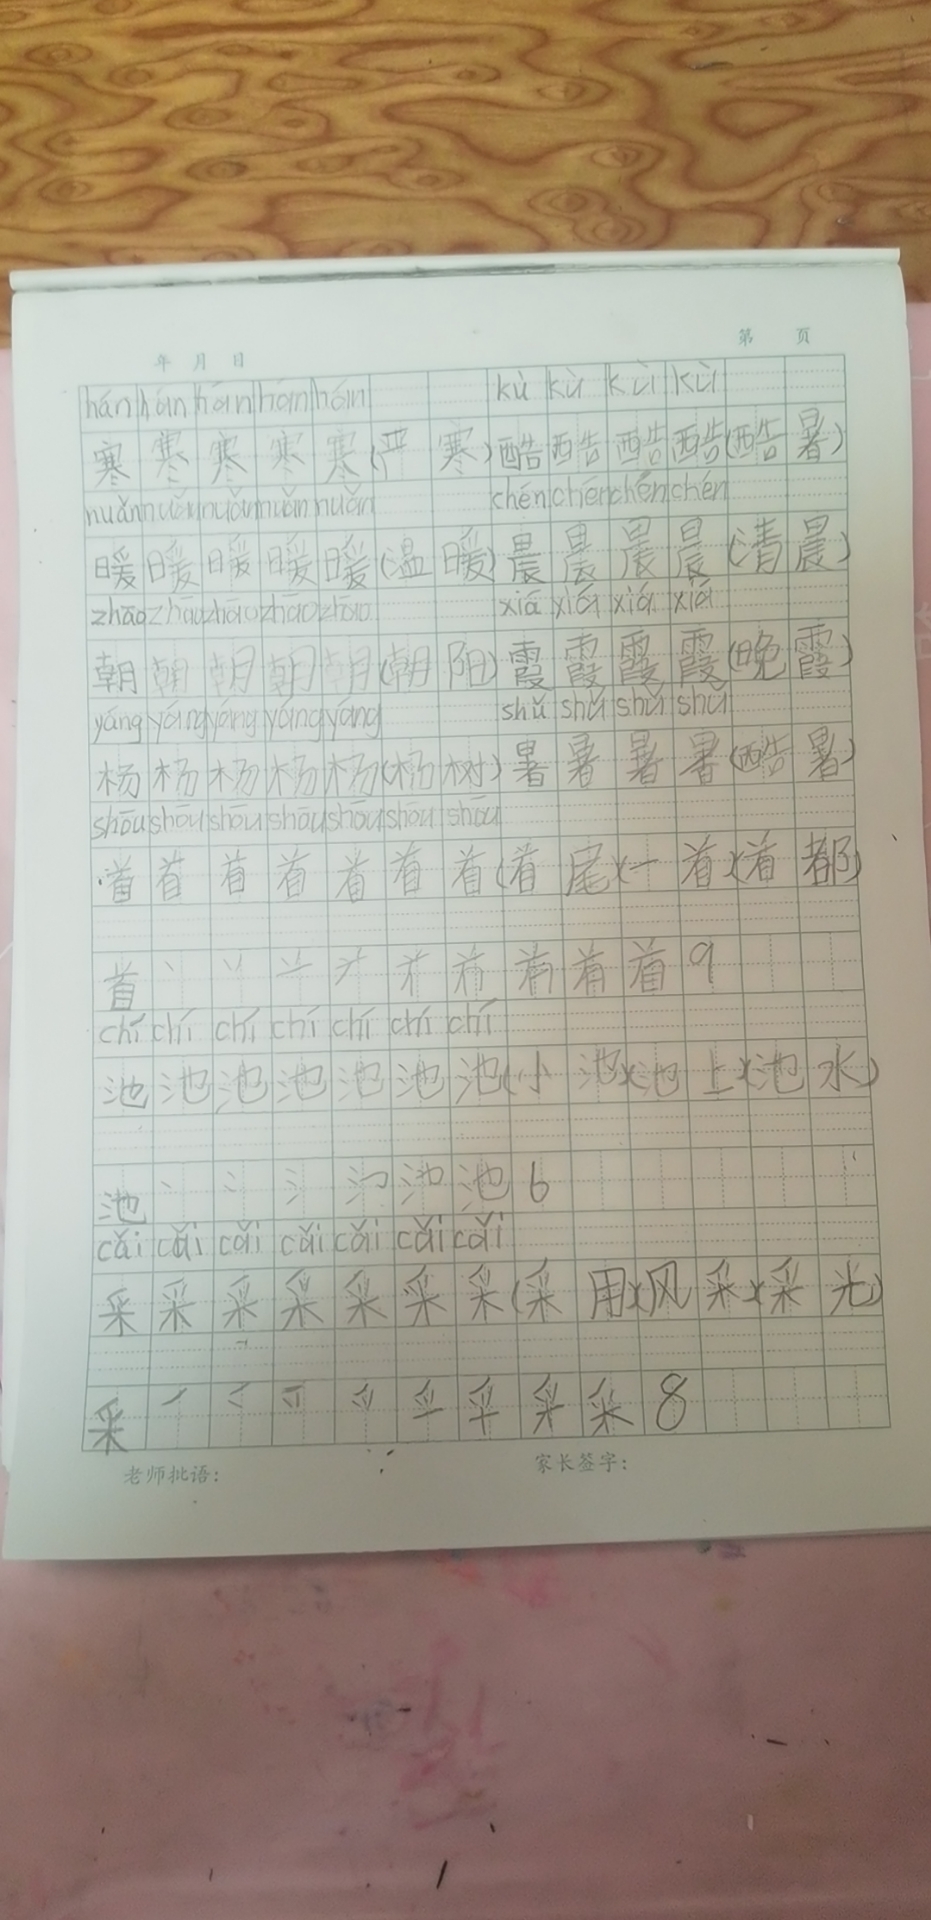 年 月 日 第 页
hán hán hán hán hán kù kù kù kù
寒 寒 寒 寒 寒 (严 寒) 酷 酷 酷 酷 (酷 暑)
nuǎn nuǎn nuǎn nuǎn nuǎn chén chén chén chén
暖 暖 暖 暖 暖 (温 暖) 晨 晨 晨 晨 (清 晨)
zhāo zhāo zhāo zhāo zhāo xiá xiá xiá xiá
朝 朝 朝 朝 朝 (朝 阳) 霞 霞 霞 霞 (晚 霞)
yáng yáng yáng yáng yáng shǔ shǔ shǔ shǔ
杨 杨 杨 杨 杨 (杨 树) 暑 暑 暑 暑 (酷 暑)
shōu shōu shōu shōu shōu shōu shōu
首 首 首 首 首 首 首 (首 尾) (一 首) (首 都)
首 9
chí chí chí chí chí chí chí
池 池 池 池 池 池 池 (小 池) (池 上) (池 水)
池 丶 氵 池 6
cǎi cǎi cǎi cǎi cǎi cǎi cǎi
采 采 采 采 采 采 采 (采 用) (风 采) (采 光)
采 采 8
老师批语: 家长签字: